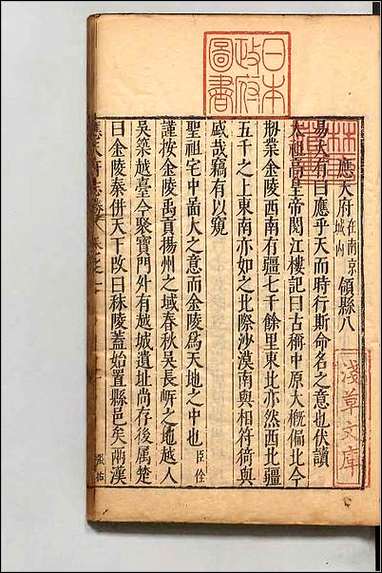 應天府 在南京城內 領縣八
易大有曰應乎天而時行斯命名之意也伏讀
太祖高皇帝閱江樓記曰古稱中原大概偏北今
刱業金陵西南有疆七千餘里東北亦然西北疆
五千之上東南亦如之北際沙漠南與相符徛與
戚哉竊有以窺
聖祖宅中啚大之意而金陵爲天地之中也 臣佺
謹按金陵禹貢揚州之域春秋吳長㟁之地越人
吳築越臺今聚寶門外有越城遺址尚存後属楚
曰金陵秦併天下改曰秣陵蓋始置縣邑矣兩漢
日本
政府
圖書
淺草文庫